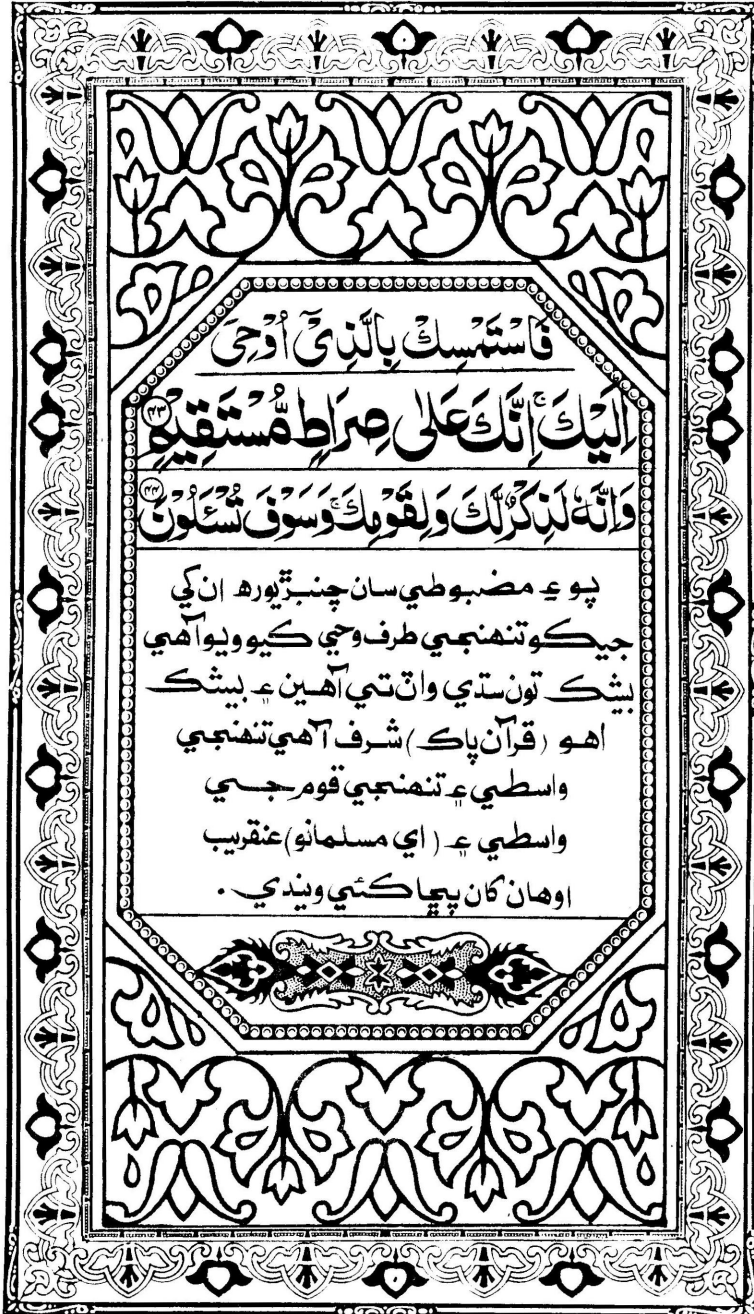 فَاسْتَمْسِكْ بِالَّذِىْٓ اُوْحِىَ
اِلَيْكَ ۚ اِنَّكَ عَلٰى صِرَاطٍ مُّسْتَقِيْمٍ ﴿۴۳﴾
وَاِنَّهٗ لَذِكْرٌ لَّكَ وَلِقَوْمِكَ ۚ وَسَوْفَ تُسْـَٔلُوْنَ ﴿۴۴﴾
پوءِ مضبوطيءَ سان چنبڙيو رھ ان کي
جيڪو تنهنجي طرف وحي ڪيو ويو آهي
بيشڪ تون سڌي واٽ تي آهين ۽ بيشڪ
اهو (قرآن پاڪ) شرف آهي تنهنجي
واسطي ۽ تنهنجي قوم جي
واسطي ۽ (اي مسلمانو) عنقريب
اوهان کان پڇا ڪئي ويندي.